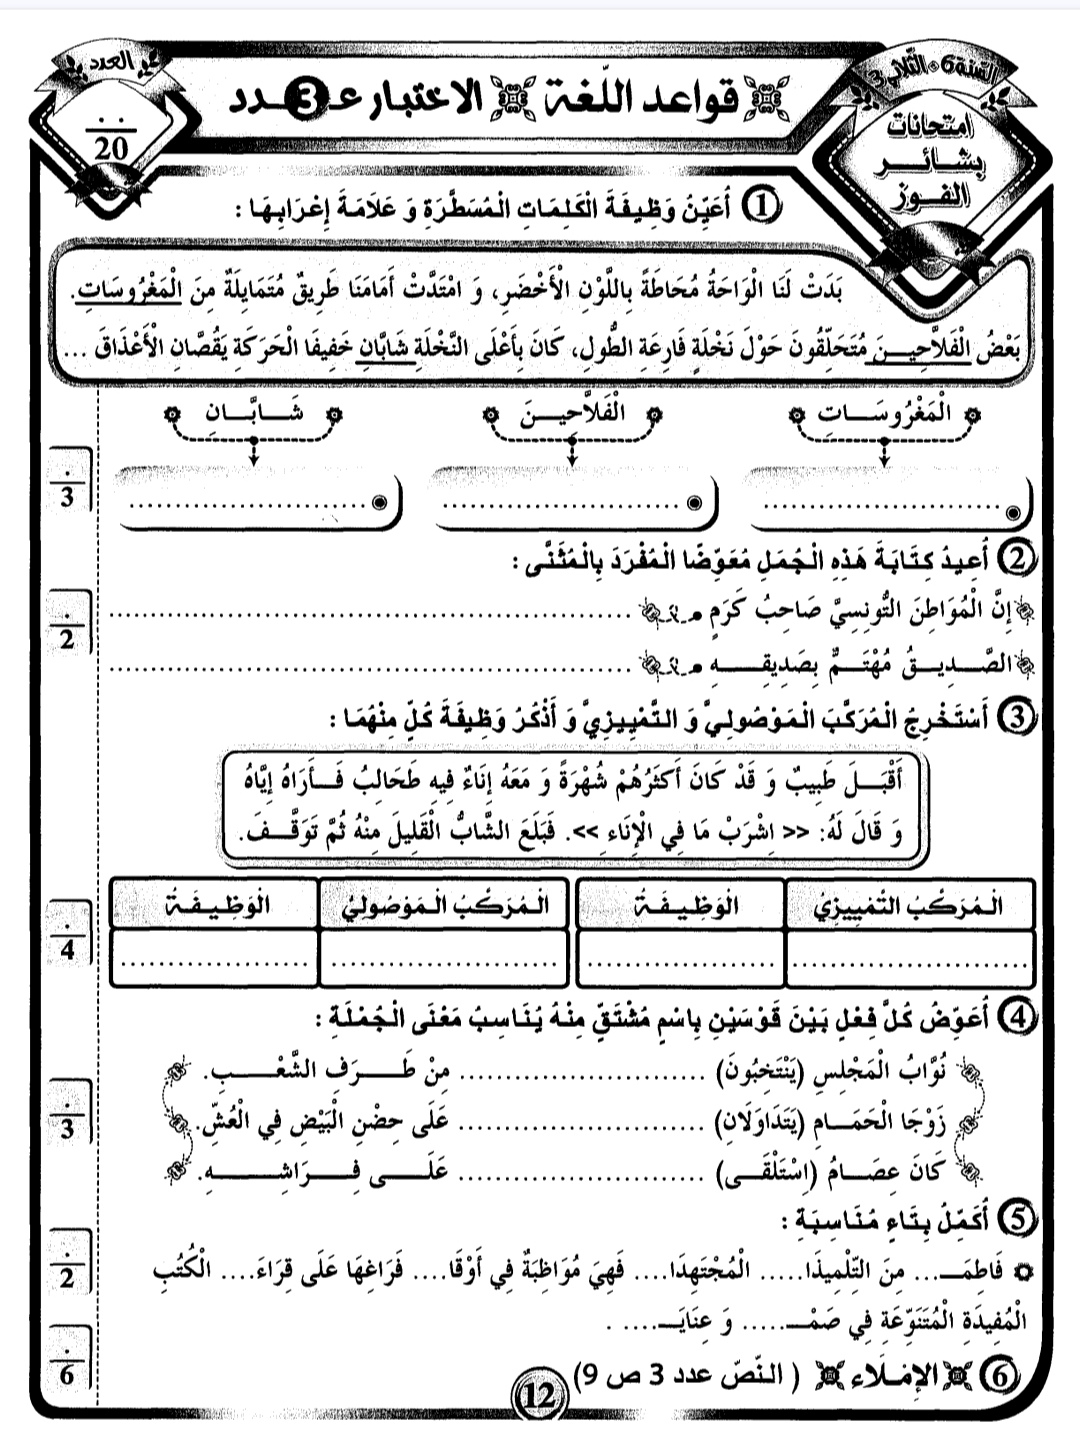 السّنة 6 • الثّلاثي 3
امتحانات
بشائر
الفوز
قواعد اللّغة الاختبار عـ3ـدد
العدد
..
20
1 أُعَيِّنُ وَظِيفَةَ الْكَلِمَاتِ الْمُسَطَّرَةِ وَ عَلَامَةَ إِعْرَابِهَا :
بَدَتْ لَنَا الْوَاحَةُ مُحَاطَةً بِاللَّوْنِ الْأَخْضَرِ، وَ امْتَدَّتْ أَمَامَنَا طَرِيقٌ مُتَمَايِلَةٌ مِنَ الْمَغْرُوسَاتِ.
بَعْضُ الْفَلَّاحِيـــنَ مُتَحَلِّقُونَ حَوْلَ نَخْلَةٍ فَارِعَةِ الطُّولِ، كَانَ بِأَعْلَى النَّخْلَةِ شَابَّانِ خَفِيفَا الْحَرَكَةِ يَقُصَّانِ الْأَعْذَاقَ ...
الْمَغْرُوسَـــاتِ الْفَلَّاحِيـــنَ شَـــابَّـــانِ
.
3
............................ ............................ ............................
2 أُعِيدُ كِتَابَةَ هَذِهِ الْجُمَلِ مُعَوِّضًا الْمُفْرَدَ بِالْمُثَنَّى :
إِنَّ الْمُوَاطِنَ التُّونِسِيَّ صَاحِبُ كَرَمٍ ..............................................................
.
2
الصَّـــدِيـــقُ مُهْتَـــمٌّ بِصَدِيقِـــــهِ ..............................................................
3 أَسْتَخْرِجُ الْمُرَكَّبَ الْمَوْصُولِيَّ وَ التَّمْيِيزِيَّ وَ أَذْكُرُ وَظِيفَةَ كُلٍّ مِنْهُمَا :
أَقْبَـــلَ طَبِيبٌ وَ قَدْ كَانَ أَكْثَرُهُمْ شُهْرَةً وَ مَعَهُ إِنَاءٌ فِيهِ طَحَالِبُ فَـــأَرَاهُ إِيَّاهُ
وَ قَالَ لَهُ: << اِشْرَبْ مَا فِي الْإِنَاءِ >>. فَبَلَعَ الشَّابُّ الْقَلِيلَ مِنْهُ ثُمَّ تَوَقَّـــفَ.
الْمُرَكَّبُ التَّمْيِيزِيُّ الْوَظِيفَةُ الْمُرَكَّبُ الْمَوْصُولِيُّ الْوَظِيفَةُ
.
4
............................ ....................... ........................... .......................
4 أُعَوِّضُ كُلَّ فِعْلٍ بَيْنَ قَوْسَيْنِ بِاسْمٍ مُشْتَقٍّ مِنْهُ يُنَاسِبُ مَعْنَى الْجُمْلَةِ :
نُوَّابُ الْمَجْلِسِ (يَنْتَخِبُونَ) ............................. مِنْ طَـــرَفِ الشَّعْـــــبِ.
.
3
زَوْجَا الْحَمَـــامِ (يَتَدَاوَلَانِ) ............................. عَلَى حِضْنِ الْبَيْضِ فِي الْعُشِّ.
كَانَ عِصَـــامُ (اِسْتَلْقَـــى) ............................. عَلَـــــى فِـــــرَاشِـــــــهِ.
5 أُكَمِّلُ بِتَاءٍ مُنَاسِبَةٍ :
فَاطِمَـــ.... مِنَ التِّلْمِيذَا..... الْمُجْتَهِدَا.... فَهِيَ مُوَاظِبَةٌ فِي أَوْقَا.... فَرَاغِهَا عَلَى قِرَاءَ.... الْكُتُبِ
.
2
الْمُفِيدَةِ الْمُتَنَوِّعَةِ فِي صَمْـــ..... وَ عِنَايَـــ..... .
6 الإمْلَاء ( النّصّ عدد 3 ص 9)
.
6
12